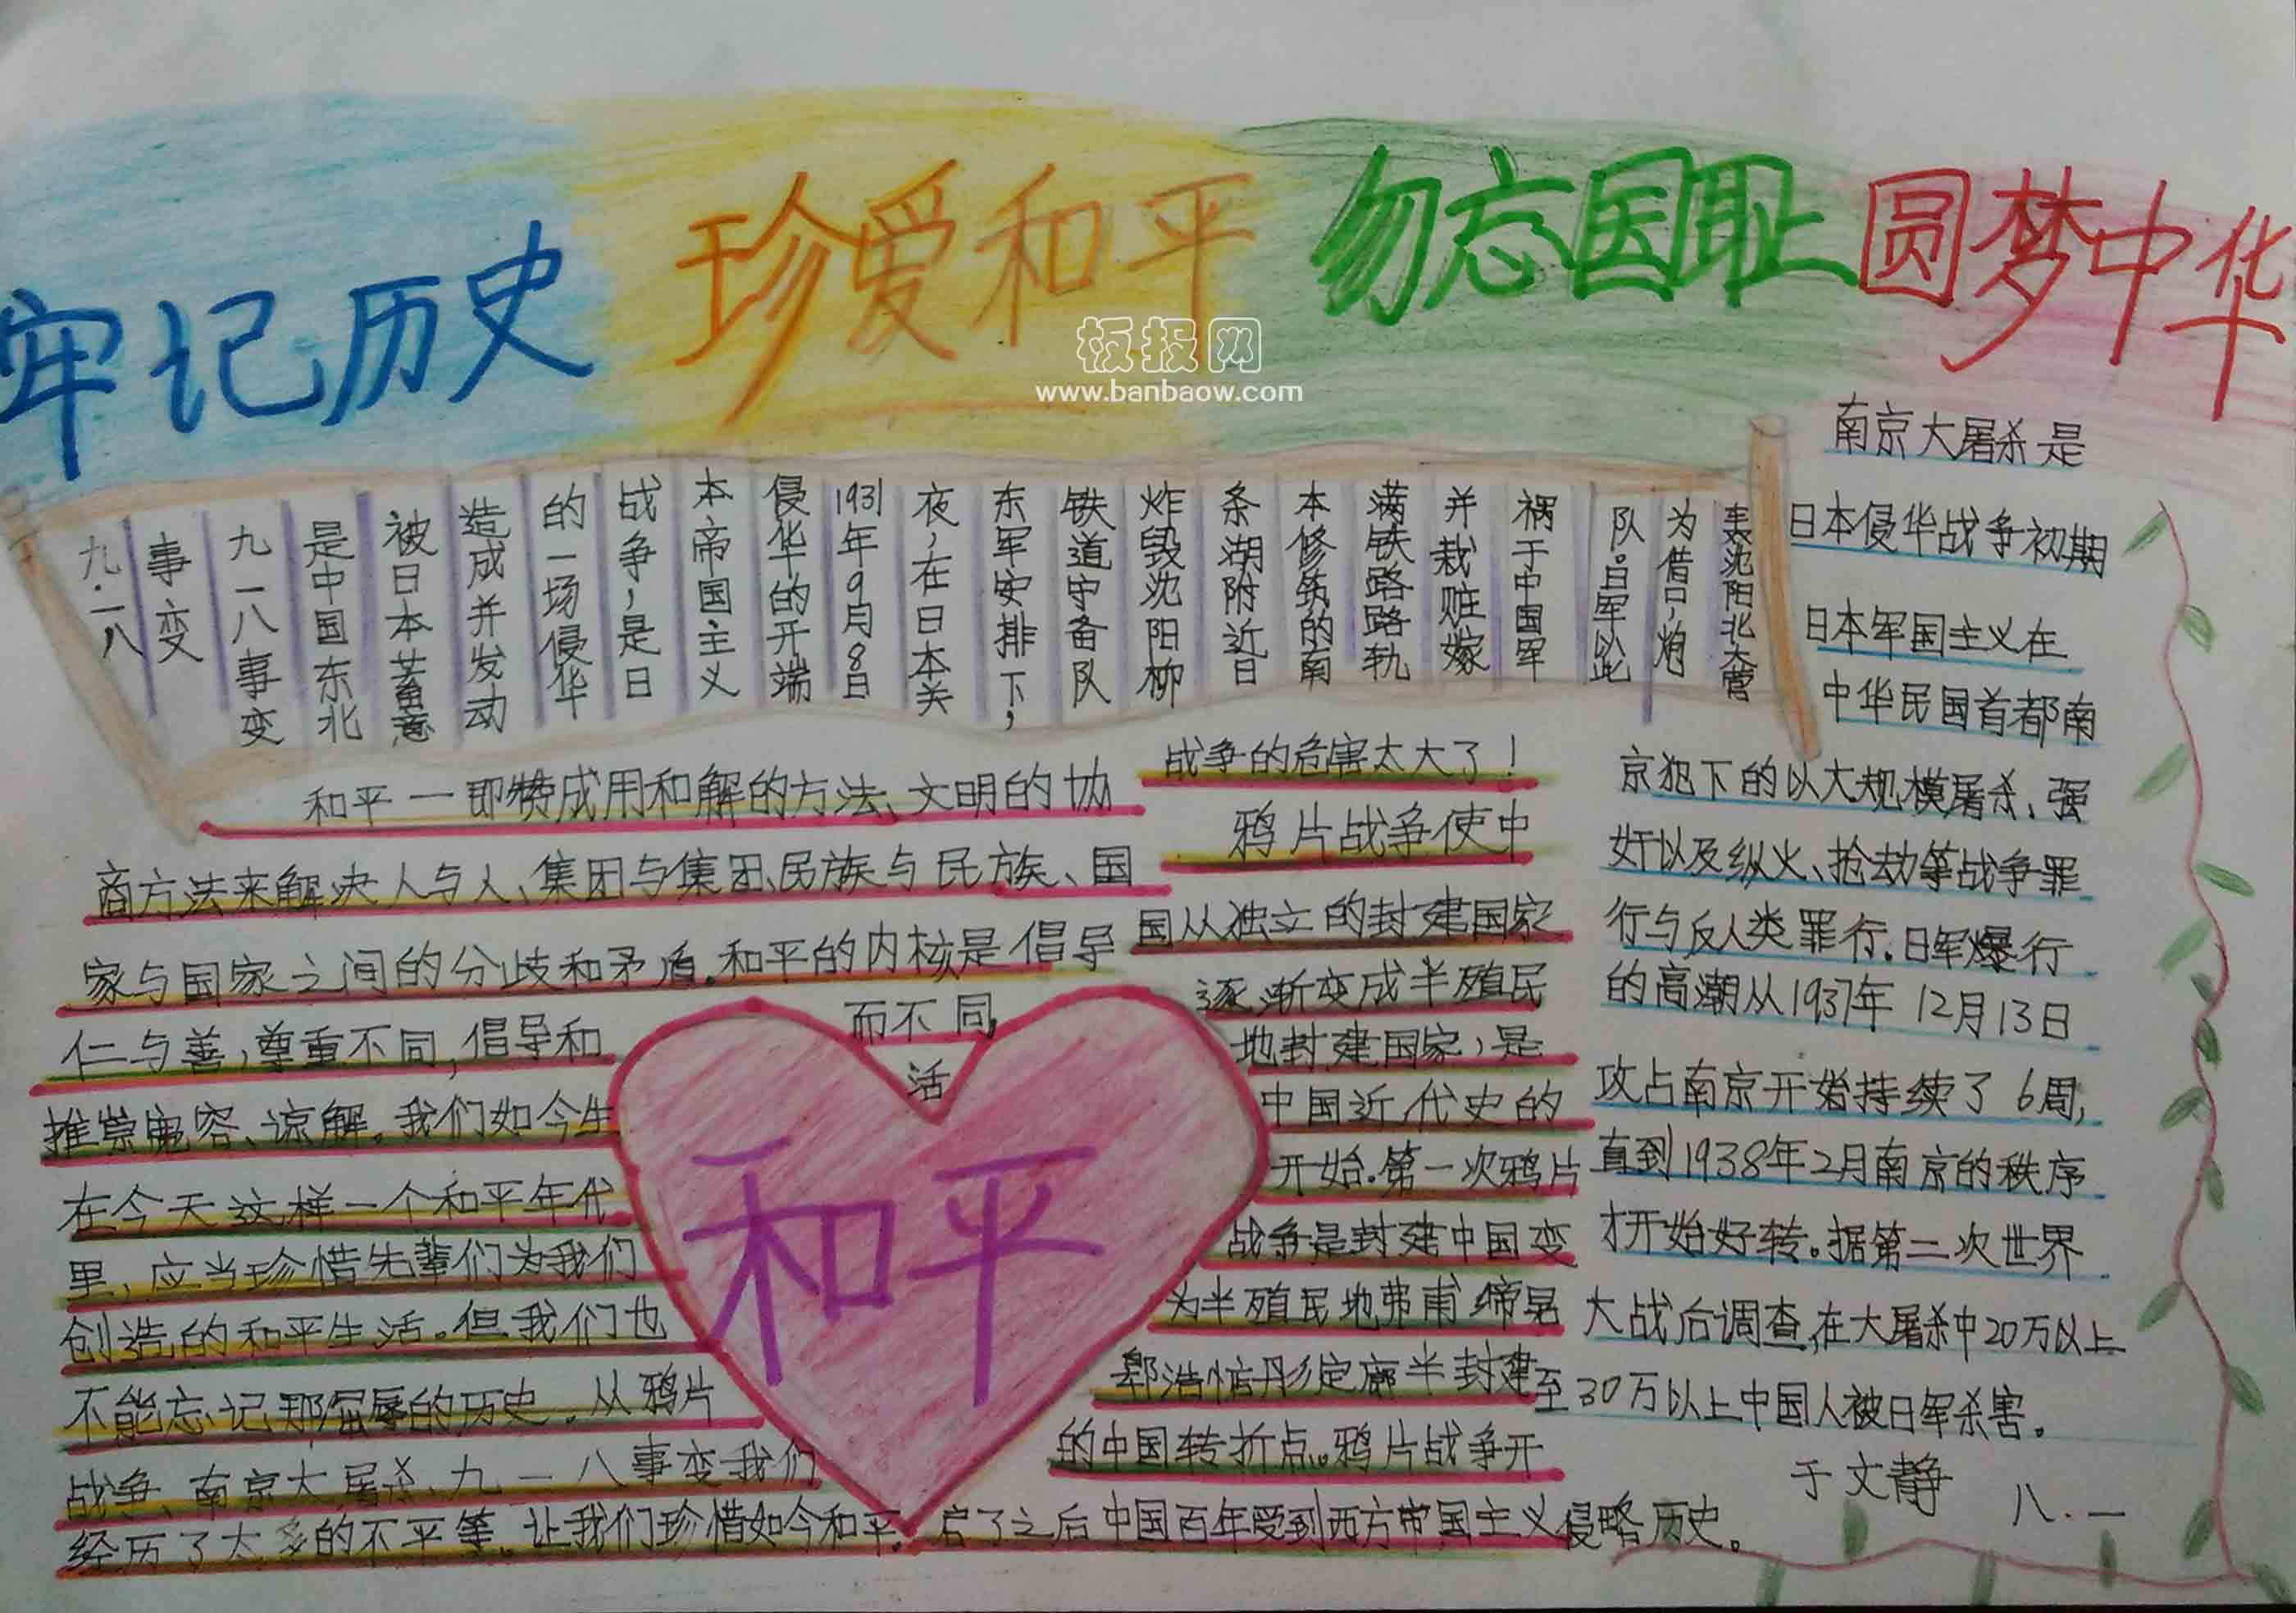 牢记历史 珍爱和平 勿忘国耻 圆梦中华
板报网
www.banbaow.com
九.一八
事变
九一八事变
是中国东北
被日本蓄意
造成并发动
的一场侵华
战争,是日
本帝国主义
侵华的开端
1931年9月8日
夜,在日本关
东军安排下,
铁道守备队
炸毁沈阳柳
条湖附近日
本修筑的南
满铁路路轨
并栽赃嫁
祸于中国军
队。日军以此
为借口,炮
轰沈阳北大营
和平一即赞成用和解的方法、文明的协
商方法来解决人与人、集团与集团、民族与民族、国
家与国家之间的分歧和矛盾。和平的内核是倡导
仁与善,尊重不同,倡导和
而不同,
推崇宽容、谅解。我们如今生
活
在今天这样一个和平年代
里,应当珍惜先辈们为我们
创造的和平生活。但我们也
不能忘记那屈辱的历史。从鸦片
战争、南京大屠杀、九一八事变我们
经历了太多的不平等。让我们珍惜如今和平。
和平
战争的危害太大了!
鸦片战争使中
国从独立的封建国家
逐渐变成半殖民
地封建国家,是
中国近代史的
开始.第一次鸦片
战争是封建中国变
为半殖民地弗甫
半封建
的中国转折点。鸦片战争开
启了之后中国百年受到西方帝国主义侵略历史。
南京大屠杀是
日本侵华战争初期
日本军国主义在
中华民国首都南
京犯下的以大规模屠杀、强
奸以及纵火、抢劫等战争罪
行与反人类罪行.日军爆行
的高潮从1937年12月13日
攻占南京开始持续了6周,
直到1938年2月南京的秩序
才开始好转。据第二次世界
大战后调查,在大屠杀中20万以上
至30万以上中国人被日军杀害。
于文静
八.一